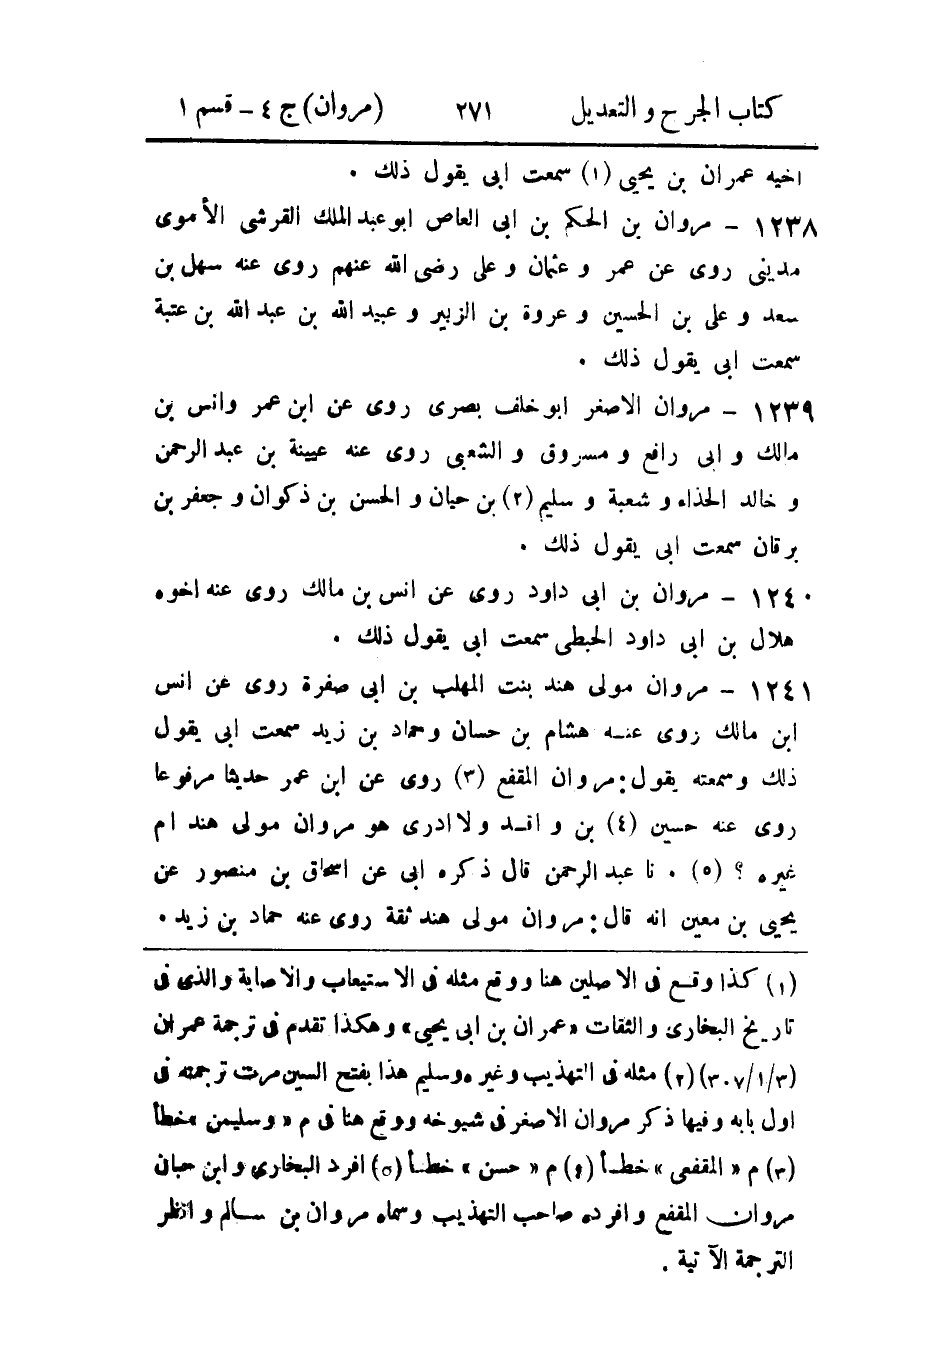 كتاب الجرح والتعديل ٢٧١ (مروان) ج ٤ - قسم ١
اخيه عمران بن يحيى (١) سمعت ابى يقول ذلك .
١٢٣٨ - مروان بن الحكم بن ابى العاص ابو عبد الملك القرشى الأموى
مدينى روى عن عمر و عثمان و على رضى الله عنهم روى عنه سهل بن
سعد و على بن الحسين و عروة بن الزبير و عبيد الله بن عبد الله بن عتبة
سمعت ابى يقول ذلك .
١٢٣٩ - مروان الاصغر ابو خلف بصرى روى عن ابن عمر وانس بن
مالك و ابى رافع و مسروق و الشعبى روى عنه عيينة بن عبد الرحمن
و خالد الحذاء و شعبة و سليم (٢) بن حيان و الحسن بن ذكوان و جعفر بن
برقان سمعت ابى يقول ذلك .
١٢٤٠ - مروان بن ابى داود روى عن انس بن مالك روى عنه اخوه
هلال بن ابى داود الحبطى سمعت ابى يقول ذلك .
١٢٤١ - مروان مولى هند بنت المهلب بن ابى صفرة روى عن انس
ابن مالك روى عنه هشام بن حسان وحماد بن زيد سمعت ابى يقول
ذلك وسمعته يقول: مروان المقفع (٣) روى عن ابن عمر حديثا مرفوعا
روى عنه حسين (٤) بن واقد ولا ادرى هو مروان مولى هند ام
غيره ؟ (٥) . نا عبد الرحمن قال ذكره ابى عن اسحاق بن منصور عن
يحيى بن معين انه قال: مروان مولى هند ثقة روى عنه حماد بن زيد .
(١) كذا وقع فى الاصلين هنا ووقع مثله فى الاستيعاب والاصابة والذى فى
تاريخ البخارى والثقات «عمران بن ابى يحيى» وهكذا تقدم فى ترجمة عمران
(٣/١/٣٠٧) (٢) مثله فى التهذيب وغيره وسليم هذا بفتح السين مرت ترجمته فى
اول بابه وفيها ذكر مروان الاصغر فى شيوخه ووقع هنا فى م «وسليمن» خطأ
(٣) م «المقفعى» خطأ (٤) م «حسن» خطأ (٥) افرد البخارى وابن حبان
مروان المقفع وافرده صاحب التهذيب وسماه مروان بن سالم وانظر
الترجمة الآتية .